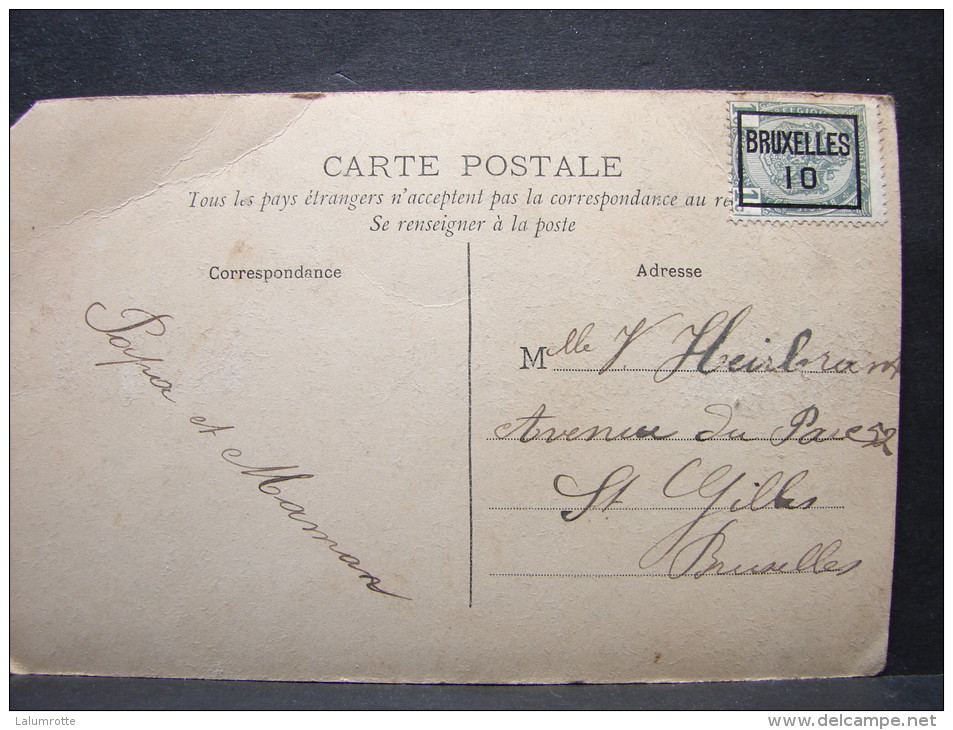 CARTE POSTALE
Tous les pays étrangers n'acceptent pas la correspondance au re
Se renseigner à la poste
BRUXELLES
10
Correspondance
Papa et Maman
Adresse
Mlle V. Heirbrant
Avenue du Parc 52
St Gilles
Bruxelles
Lalumrotte
www.delcampe.net